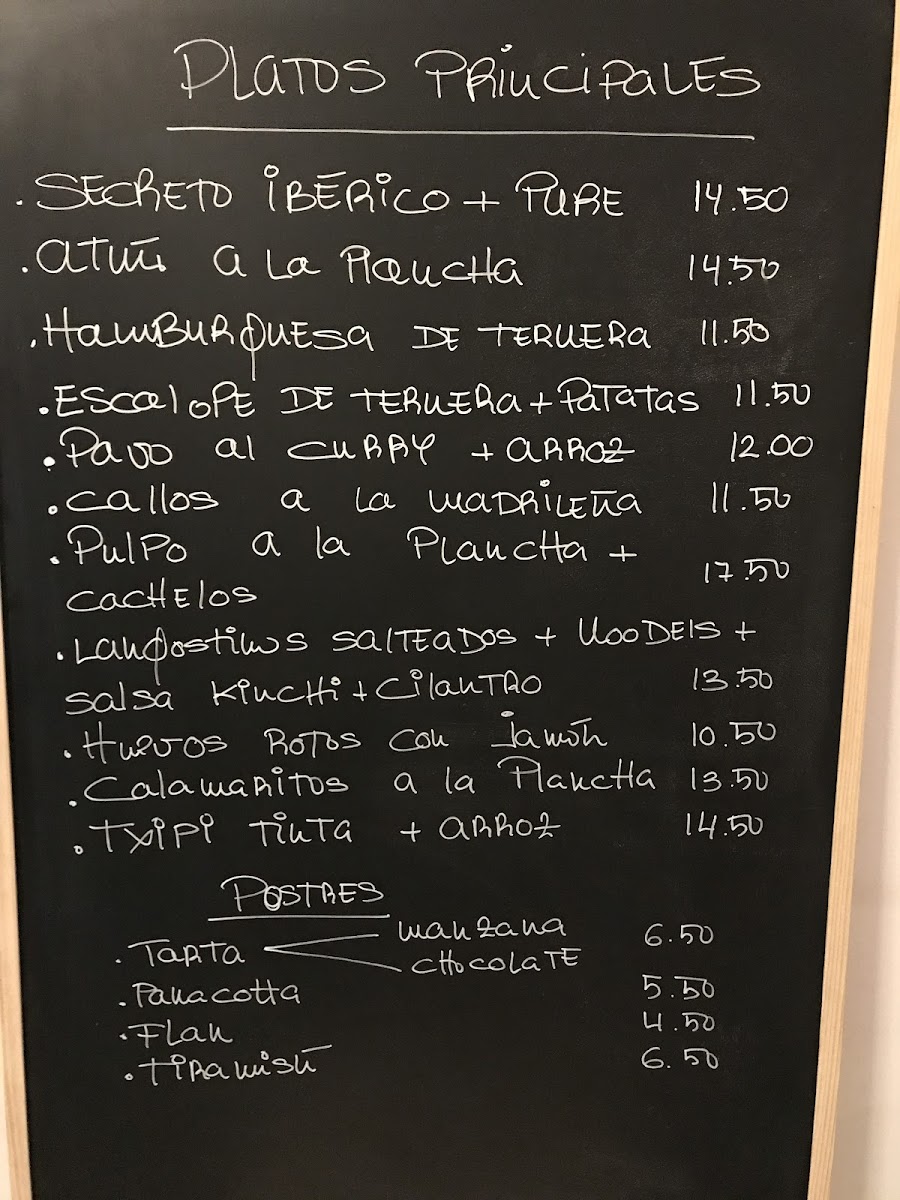 PLATOS PRINCIPALES
. SECRETO IBÉRICO + PURE 14.50
. ATÚN A LA PLANCHA 14.50
. HAMBURQUESA DE TERNERA 11.50
. ESCALOPE DE TERNERA + PATATAS 11.50
. PAVO AL CURRY + ARROZ 12.00
. CALLOS A LA MADRILEÑA 11.50
. PULPO A LA PLANCHA +
CACHELOS 17.50
. LANGOSTINOS SALTEADOS + NOODELS +
SALSA KINCHI + CILANTRO 13.50
. HUEVOS ROTOS CON JAMÓN 10.50
. CALAMARITOS A LA PLANCHA 13.50
. TXIPI TINTA + ARROZ 14.50
POSTRES
. TARTA MANZANA 6.50
CHOCOLATE
. PANACOTTA 5.50
. FLAN 4.50
. TIRAMISÚ 6.50